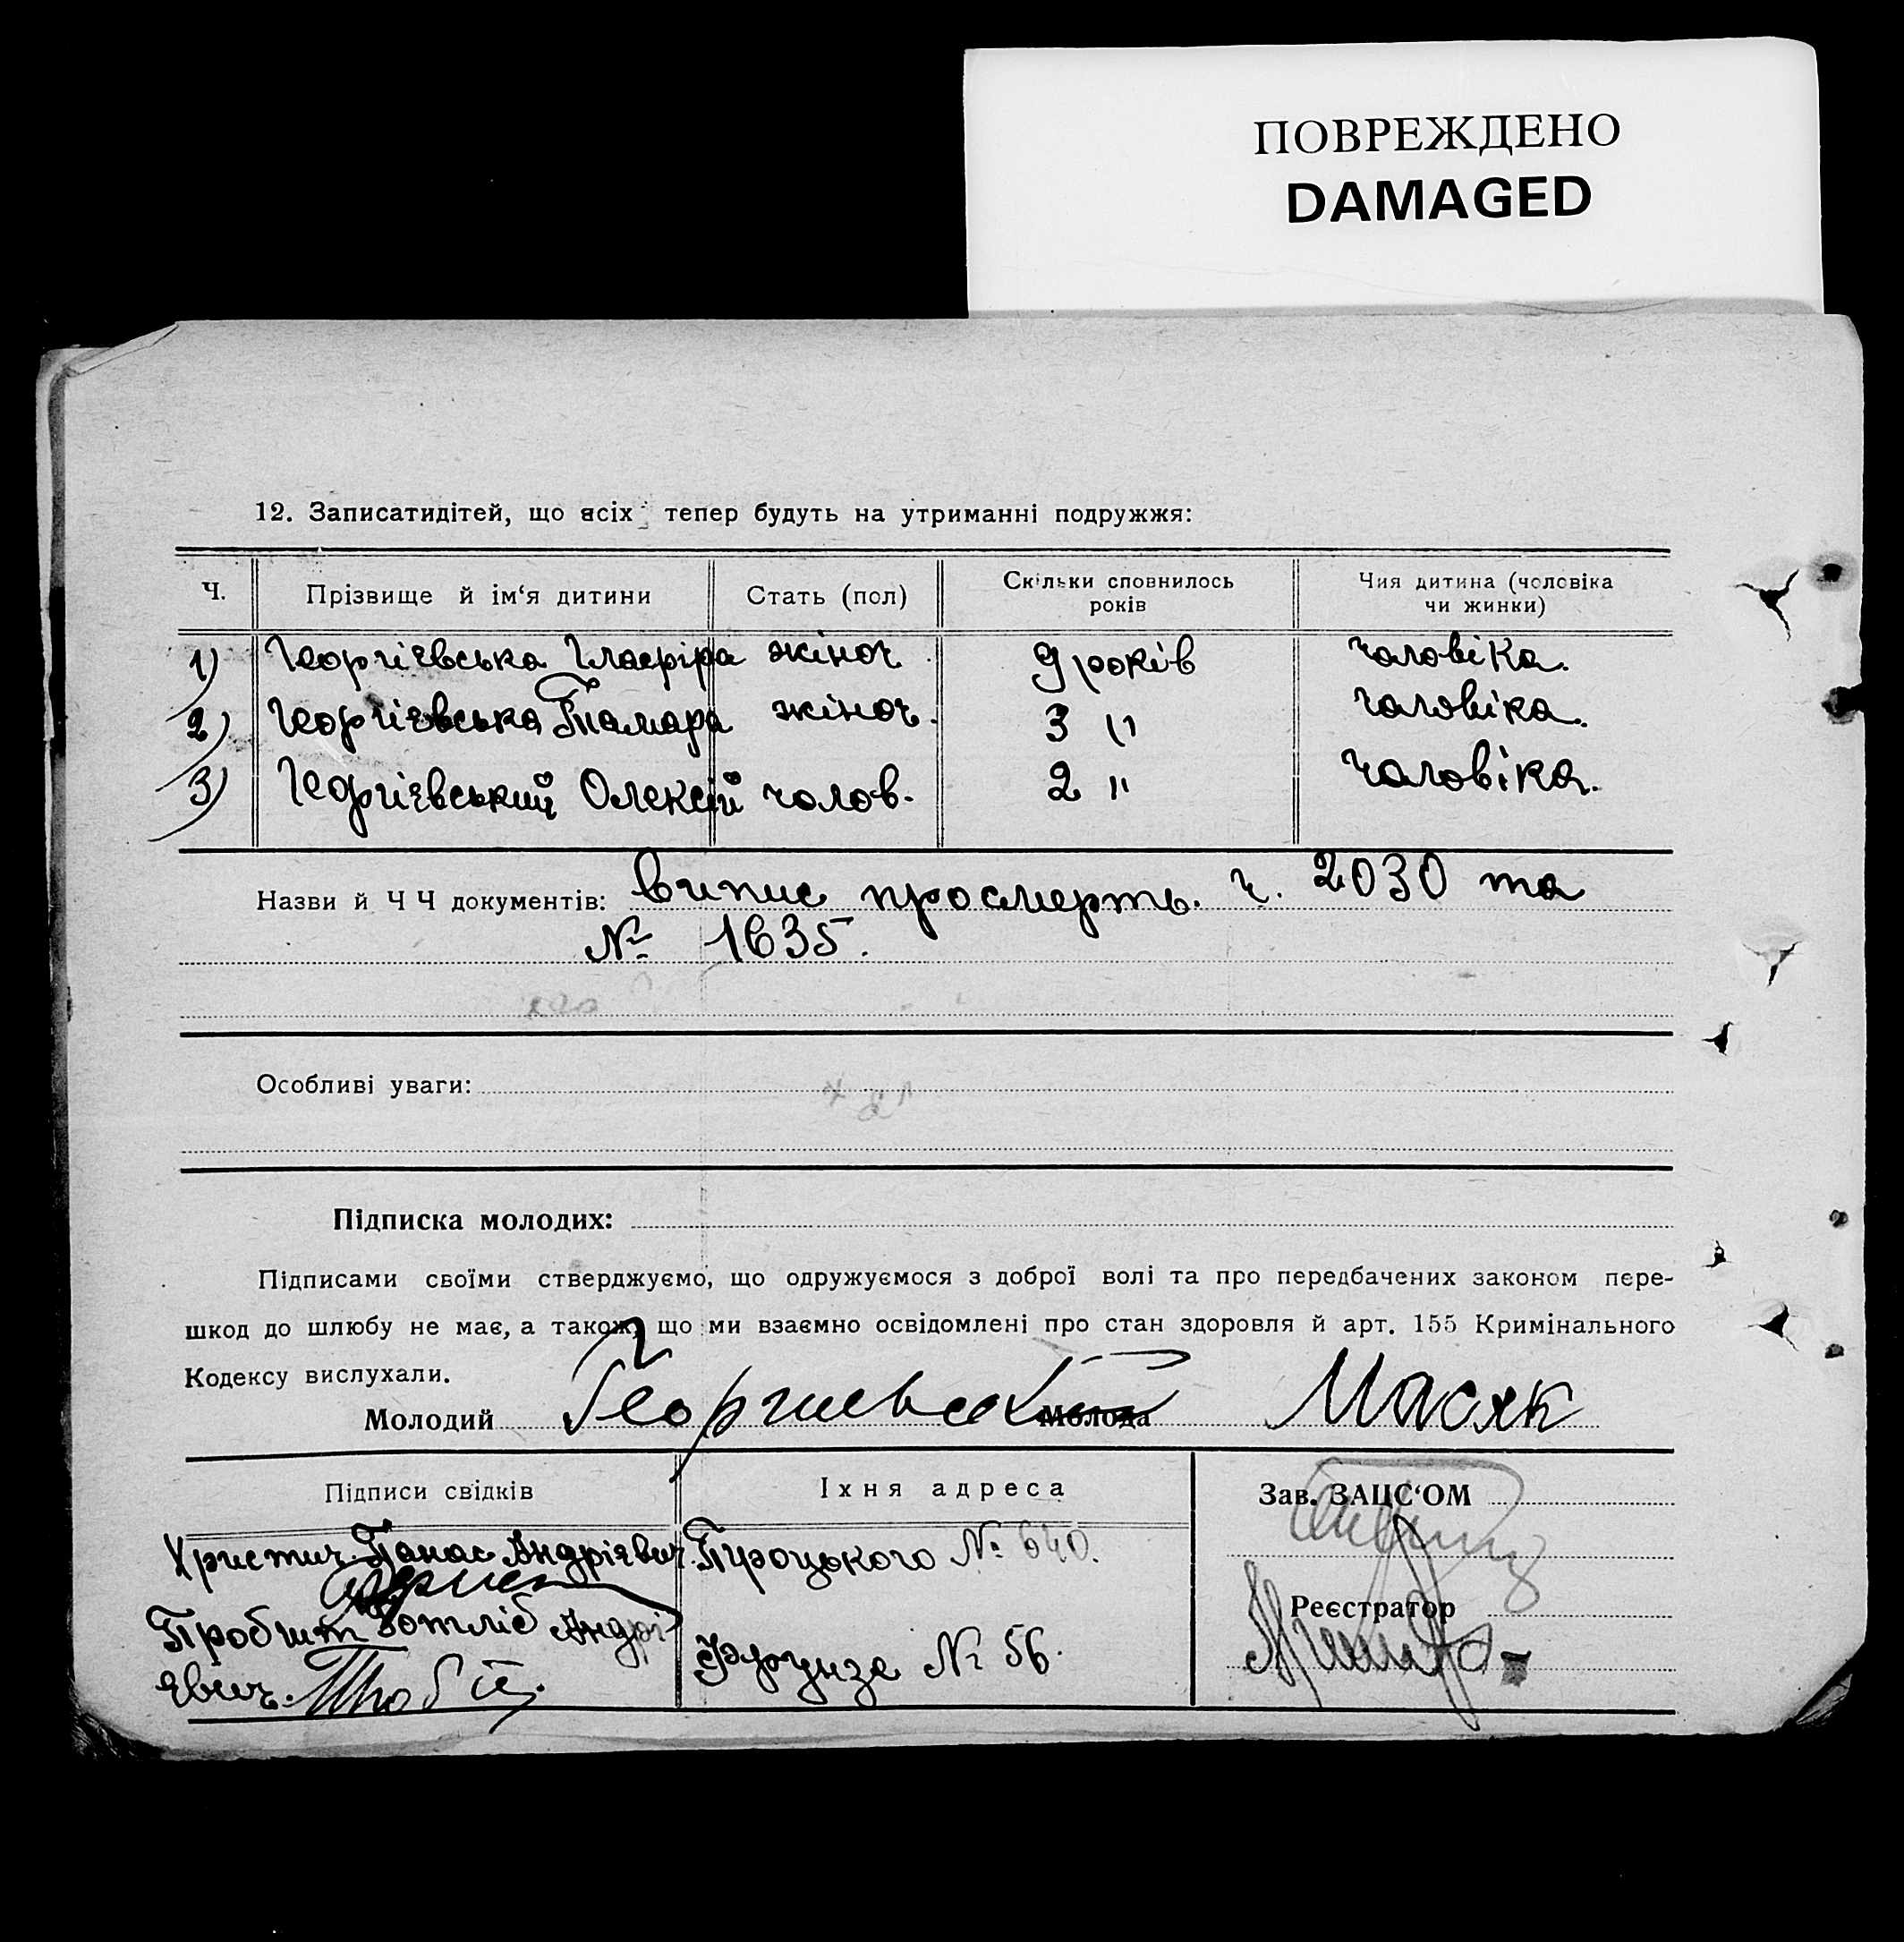 ПОВРЕЖДЕНО
DAMAGED
12. Записатидітей, що всіх тепер будуть на утриманні подружжя:
Ч. Прізвище й ім‘я дитини Стать (пол) Скільки сповнилось років Чия дитина (чоловіка чи жинки)
1) Георгієвська Глафіра жіноч. 9 років чоловіка.
2) Георгієвська Тамара жіноч. 3 " чоловіка.
3) Георгієвський Олексій чолов. 2 " чоловіка.
Назви й Ч Ч документів: випис просмерть. ч. 2030 та
№ 1635.
Особливі уваги:
Підписка молодих:
Підписами своїми стверджуємо, що одружуємося з доброї волі та про передбачених законом пере-
шкод до шлюбу не має, а також, що ми взаємно освідомлені про стан здоровля й арт. 155 Кримінального
Кодексу вислухали.
Молодий Георгиевский Молода Масяк
Підписи свідків Їхня адреса Зав. ЗАЦС‘ОМ
Христич Панас Андрієвич. № 640.
Реєстратор
Готліб Андрі-
євич. Фрунзе № 56.